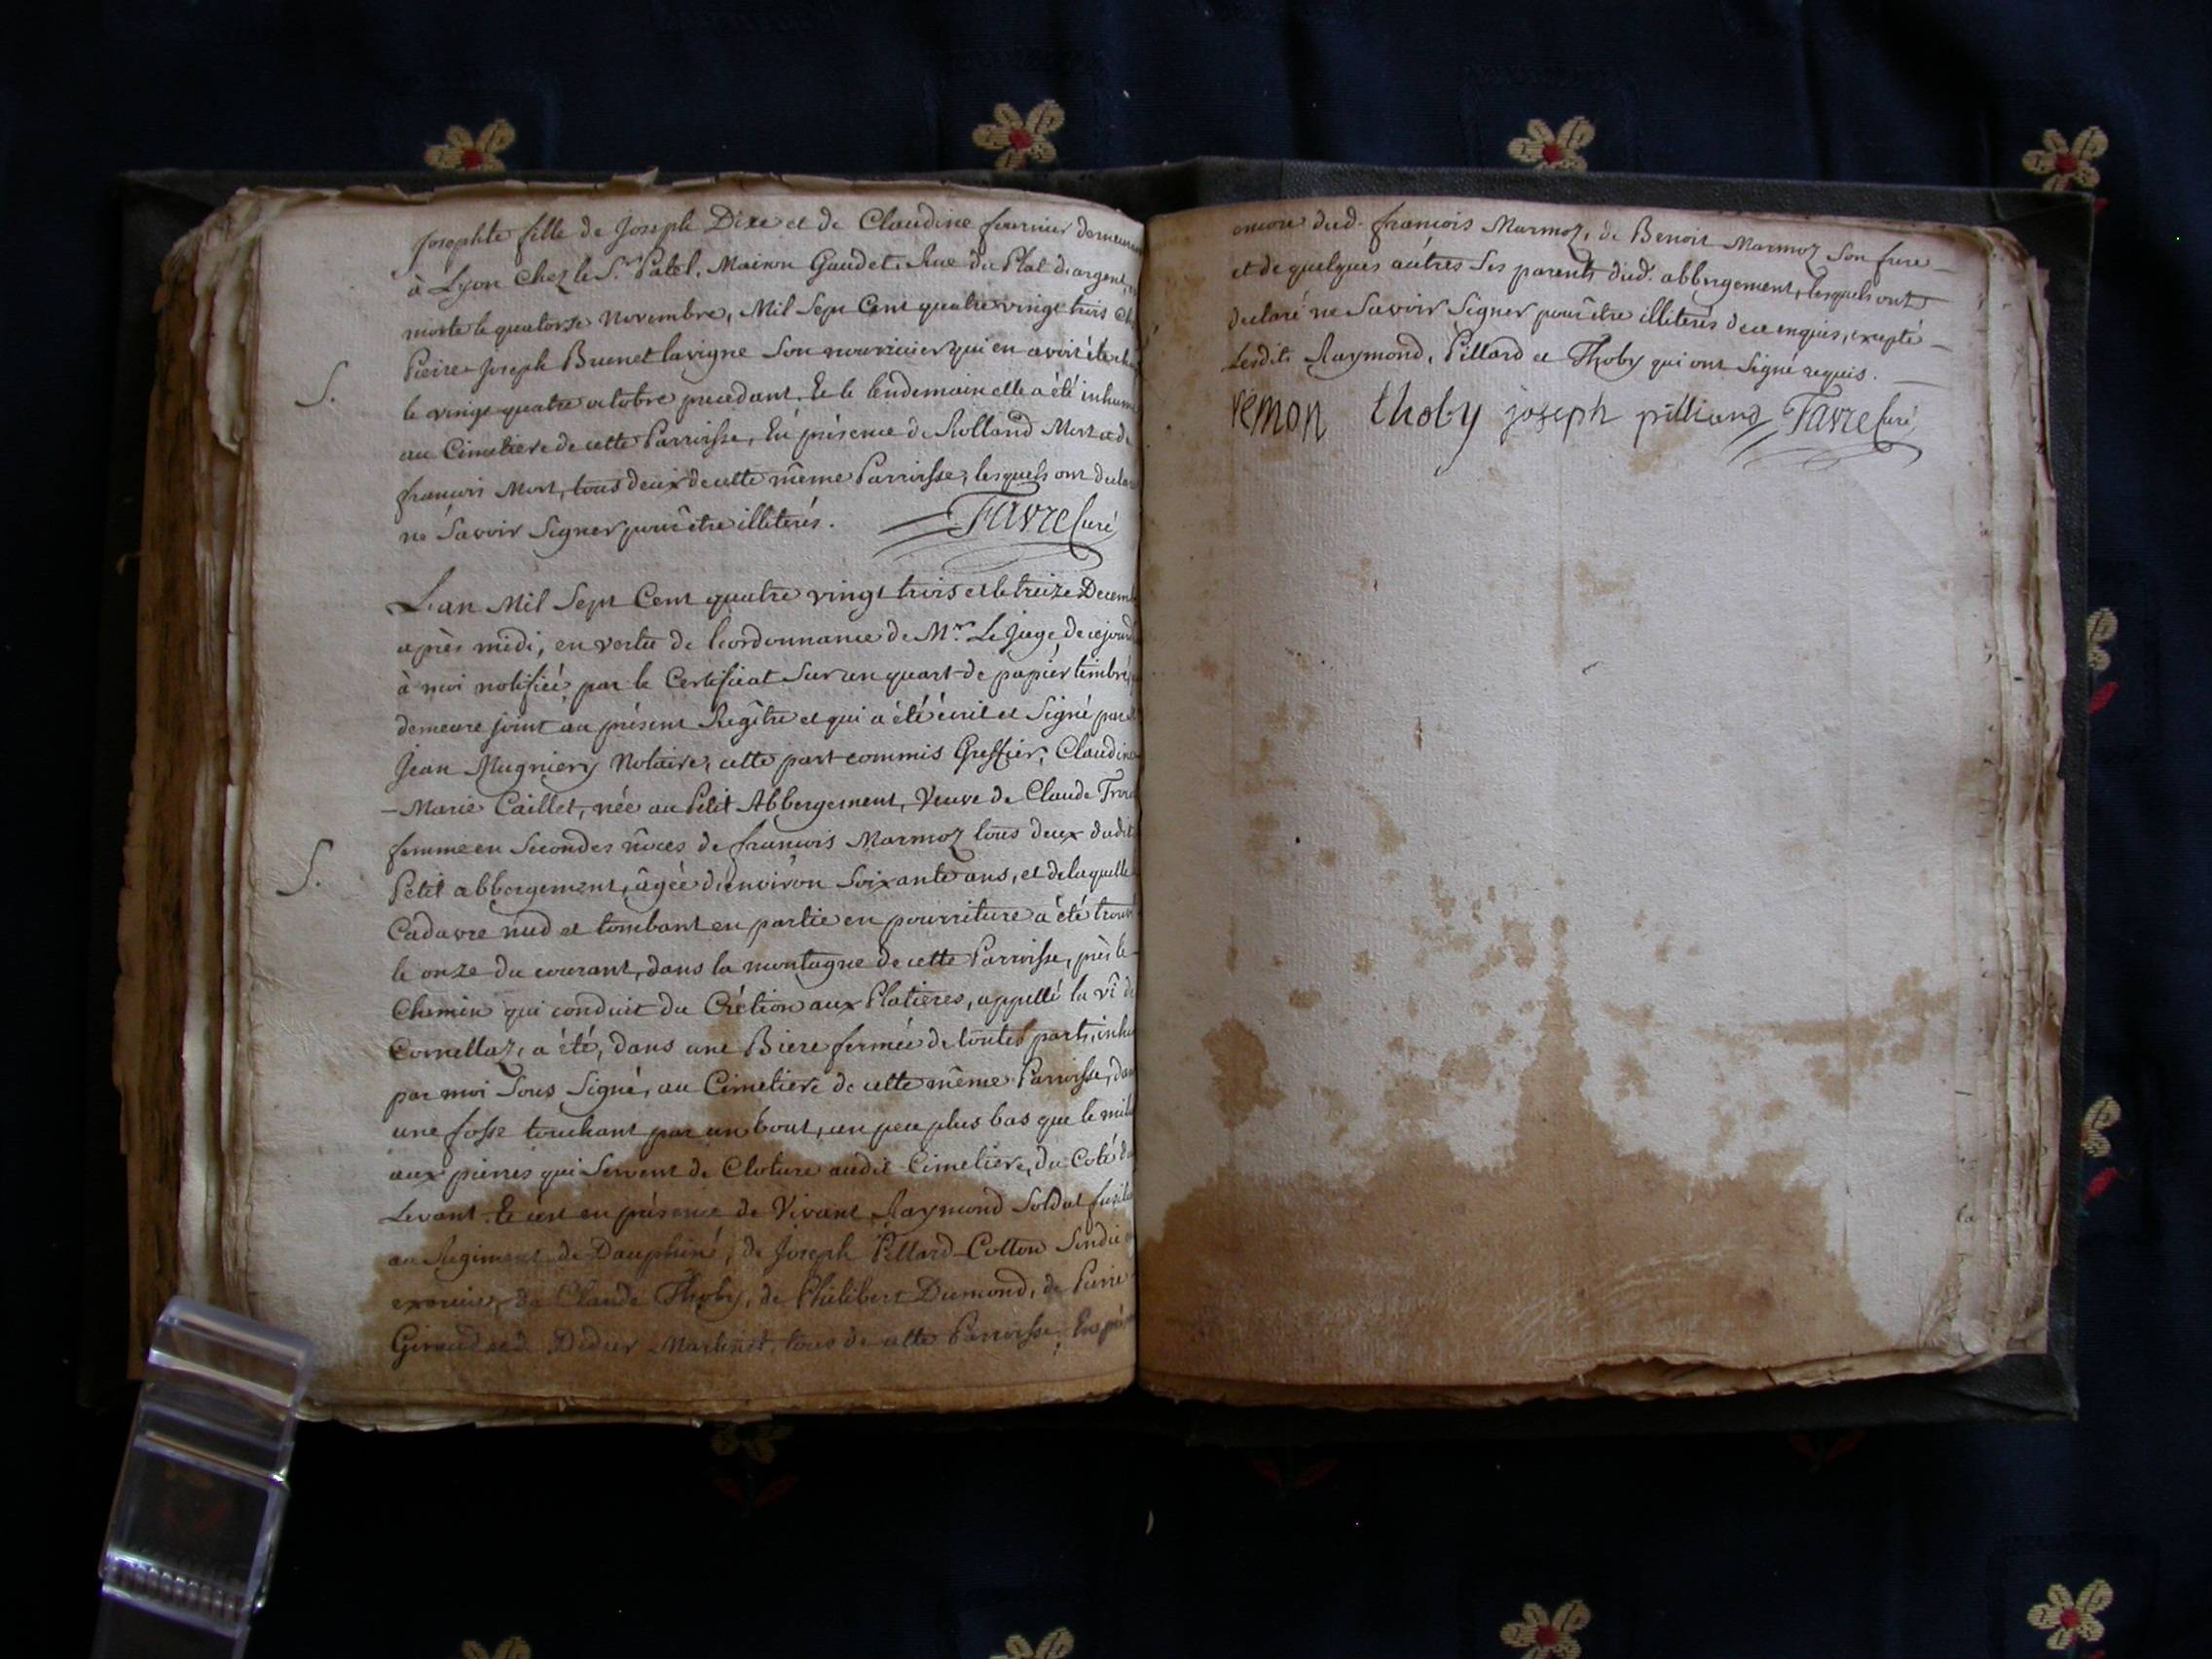 Josephte fille de Joseph Dixe et de Claudine fournier
à Lyon Chez le S.r Patel, Maison Gaudet, Rue du Plat d'argent,
morte le quatorze Novembre, Mil Sept Cent quatre vingt trois
Pierre Joseph Brunet lavigne Son nourricier qui en avoit été
S.
le vingt quatre octobre precedant. Et le lendemain elle a été
au Cimetiere de cette Parroisse, En présence de Rolland Mort et de
francois Mort, tous deux de cette même Parroisse, lesquels ont
ne Savoir Signer pour être illiterés. Favre Curé
L'an Mil Sept Cent quatre vingt trois et le treize
après midi, en vertu de l'ordonnance de M.r Le Juge de
à moi notifiée par le Certificat Sur un quart de papier timbré,
demeure joint au présent Regître et qui a été écrit et Signé par
Jean Mugniery Notaire, cette part commis Greffier, Claudine
- Marie Caillet, née au Petit Abbergement, Veuve de Claude
femme en Secondes nôces de francois Marmoz tous deux dudit
S.
Petit abbergement, âgée d'environ Soixante ans, et de laquelle
Cadavre nud et tombant en partie en pourriture a été
le onze du courant, dans la montagne de cette Parroisse, près le
Chemin qui conduit du Crétion aux Platieres, appellé la vî
Cornellaz, a été, dans une Biere fermée de toutes parts,
par moi Sous Signé, au Cimetiere de cette même Parroisse,
une fosse touchant par un bout, un peu plus bas que le
aux pierres qui Servent de Cloture audit Cimetiere, du Coté
Levant. Et c'est en présence de Vivant Raymond Soldat
au Regiment de Dauphiné, de Joseph Pillard-Cotton Sindic
exercice, de Claude Thoby, de Philibert Dumond, de Pierre
Giroud et de Didier Martinet, tous de cette Parroisse,
encore dud. francois Marmoz, de Benoit Marmoz Son frere
et de quelques autres Ses parents dud. abbergement, lesquels ont
declaré ne Savoir Signer pour être illiterés de ce enquis, excepté
Lesdits Raymond, Pillard et Thoby qui ont Signé requis.
rémon thoby joseph pilliard Favre Curé